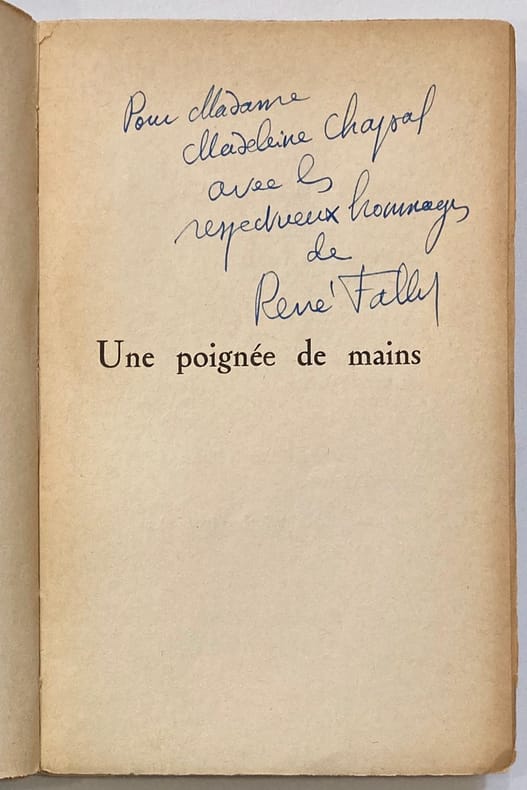 Pour Madame
Madeleine Chapsal
avec les
respectueux hommages
de
René Fallet
Une poignée de mains